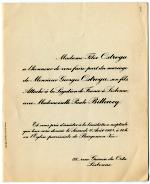 Madame Félix Ostroga
a l'honneur de vous faire part du mariage
de Monsieur Georges Ostroga, son fils
Attaché à la Légation de France à Lisbonne,
avec Mademoiselle Paule
Et vous prie d'assister à la bénédiction nuptiale
qui leur sera donnée le Samedi
en l'Église paroissiale de
Lisbonne